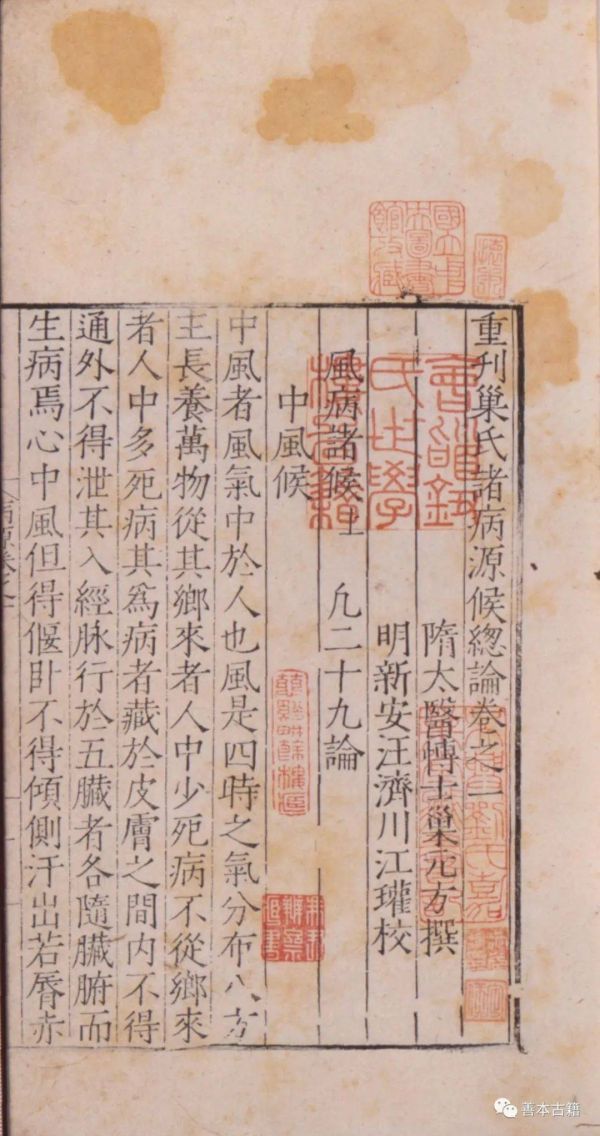 重刊巢氏諸病源候總論卷之一
隋太醫博士巢元方撰
明新安汪濟川江瓘校
風病諸候上 凢二十九論
中風候
中風者風氣中於人也風是四時之氣分布八方
主長養萬物從其鄉來者人中少死病不從鄉來
者人中多死病其爲病者藏於皮膚之間内不得
通外不得泄其入經脉行於五臟者各隨臟腑而
生病焉心中風但得偃卧不得傾側汗出若脣赤
國立中
央圖書
館收藏
善本古籍